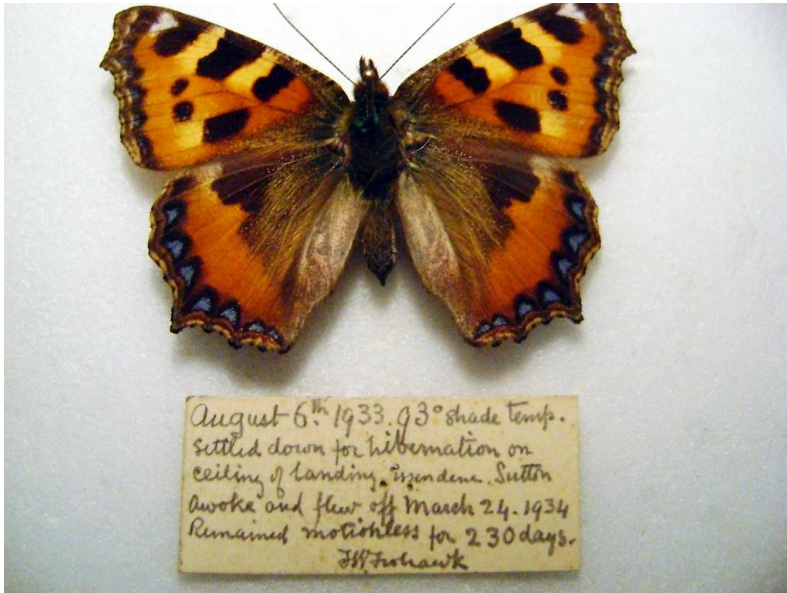 August 6.th 1933. 93° shade temp.
settled down for hibernation on
ceiling of landing. Essendene. Sutton
awoke and flew off March 24. 1934
Remained motionless for 230 days.
FW Frohawk